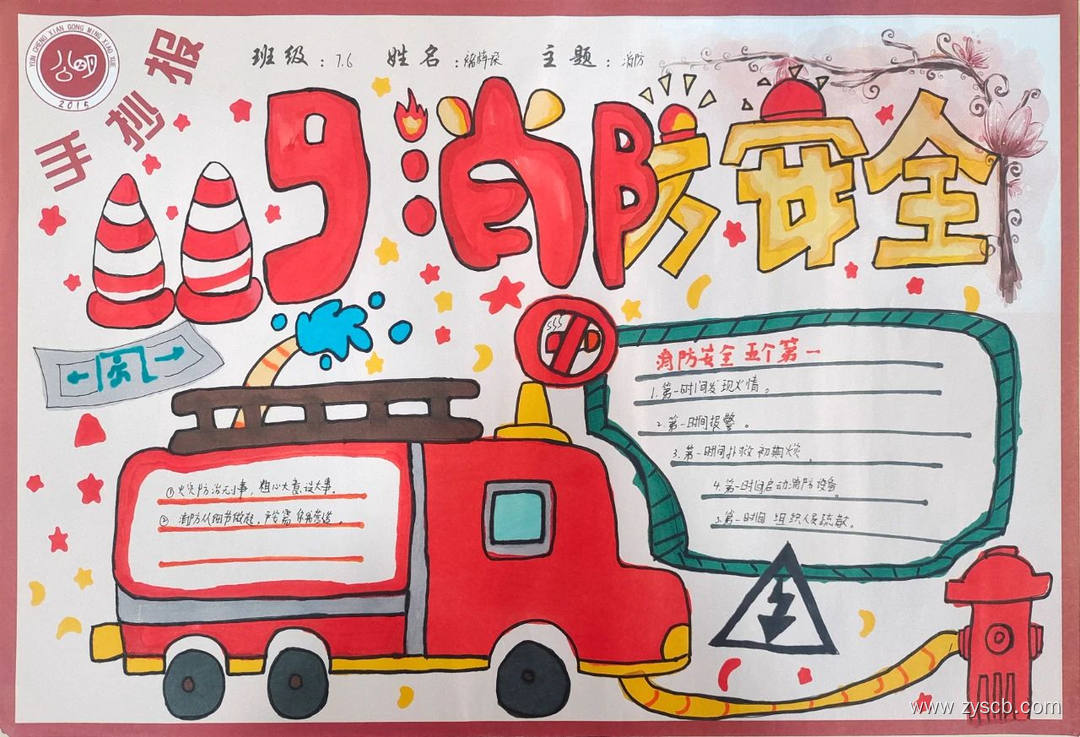 YUN CHENG XIAN GONG MING XIAO XUE
公明
2015
手抄报
班级：7.6 姓名： 主题：消防
119消防安全
消防安全 五个第一
1.第一时间发现火情。
2.第一时间报警。
3.第一时间扑救初期火灾。
4.第一时间启动消防设备。
5.第一时间组织人员疏散。
①火灾防治无小事，粗心大意误大事。
②消防从细节做起，
www.zyscb.com